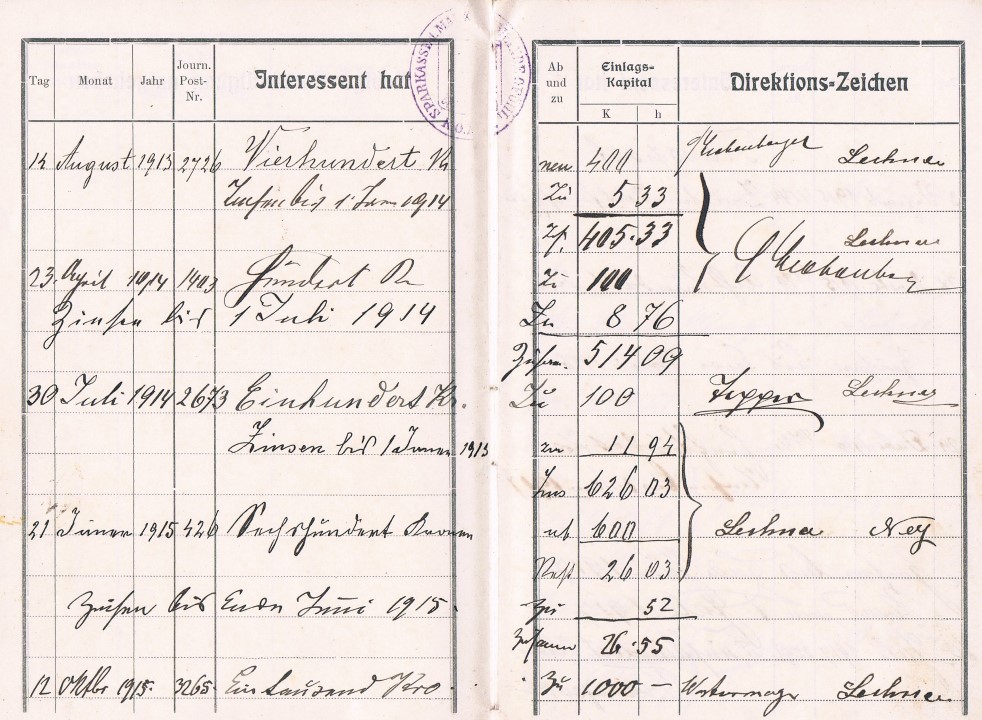 Tag Monat Jahr Journ. Post-Nr. Interessent hat
14 August 1913 2726 Vierhundert Kr
Zinsen bis 1 Jann 1914
23. April 1914 1403 Hundert Kr
Zinsen bis 1 Juli 1914
30 Juli 1914 2673 Einhundert Kr.
Zinsen bis 1 Jänner 1915
21 Jänner 1915 426 Sechshundert Kronen
Zinsen bis Ende Juni 1915.
12 Oktbr 1915. 3265. Eintausend Kro.
SPARKASSE
Ab und zu Einlags-Kapital K h Direktions-Zeichen
neu 400 Lechner
Zu 5 33
405.33 Lechner
Zu 100
Zu 8 76
Zusam. 514 09
Zu 100 Lechner
zu 11 94
626 03
ab 600 Lechner Ney
Rest 26 03
Zu 52
Zusamm 26.55
Zu 1000 — Lechner